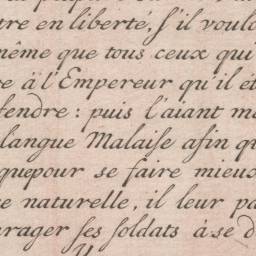 tre en liberté, s'il voulo
même que tous ceux qui
re à l'Empereur qu'il ét
fendre : puis l'aiant me
langue Malaise afin qu
quepour se faire mieux
e naturelle, il leur pa
rager ses soldats à se d